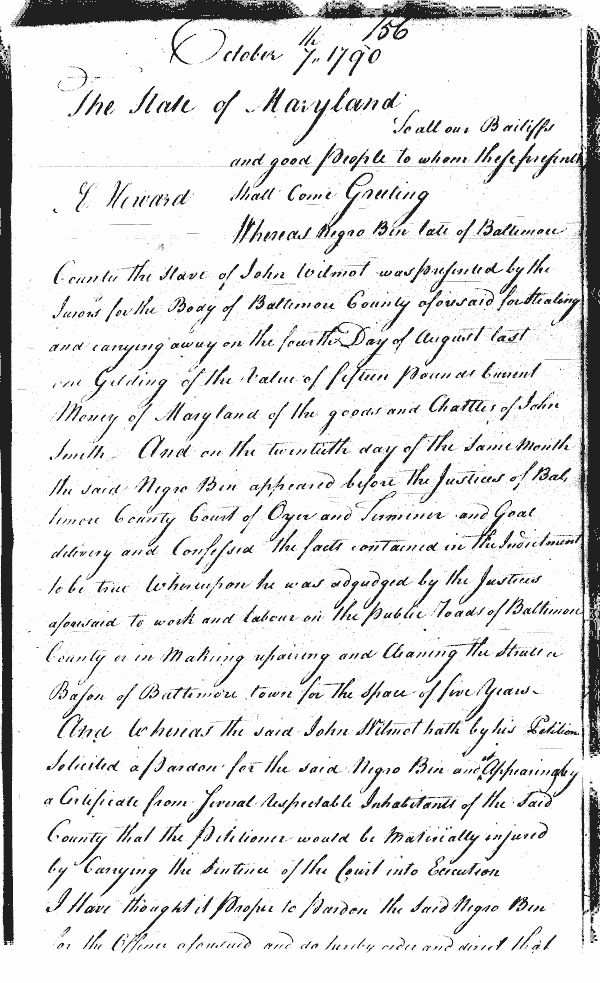 156
October 7th 1790
The State of Maryland
To all our Bailiffs
and good People to whom these presents
J. E. Howard shall Come Greeting
Whereas Negro Ben late of Baltimore
County the slave of John Wilmot was presented by the
Jurors for the Body of Baltimore County aforesaid for stealing
and carrying away on the fourth Day of August last
one Gelding of the Value of fifteen Pounds Current
Money of Maryland of the goods and Chattles of John
Smith And on the twentieth day of the same Month
the said Negro Ben appeared before the Justices of Bal
timore County Court of Oyer and Terminer and Goal
delivery and Confessed the facts contained in the Indictment
to be true Whereupon he was adgudged by the Justices
aforesaid to work and labour on the public roads of Baltimore
County or in Making repairing and Cleaning the streets or
Bason of Baltimore town for the space of five Years
And Whereas the said John Wilmot hath by his Petition
solicited a Pardon for the said Negro Ben and it Appearing by
a Certificate from several respectable Inhabitants of the said
County that the Petitioner would be Materially injured
by Carrying the sentence of the Court into Execution
I Have thought it Proper to Pardon the said Negro Ben
for the Offence aforesaid and do hereby order and direct that